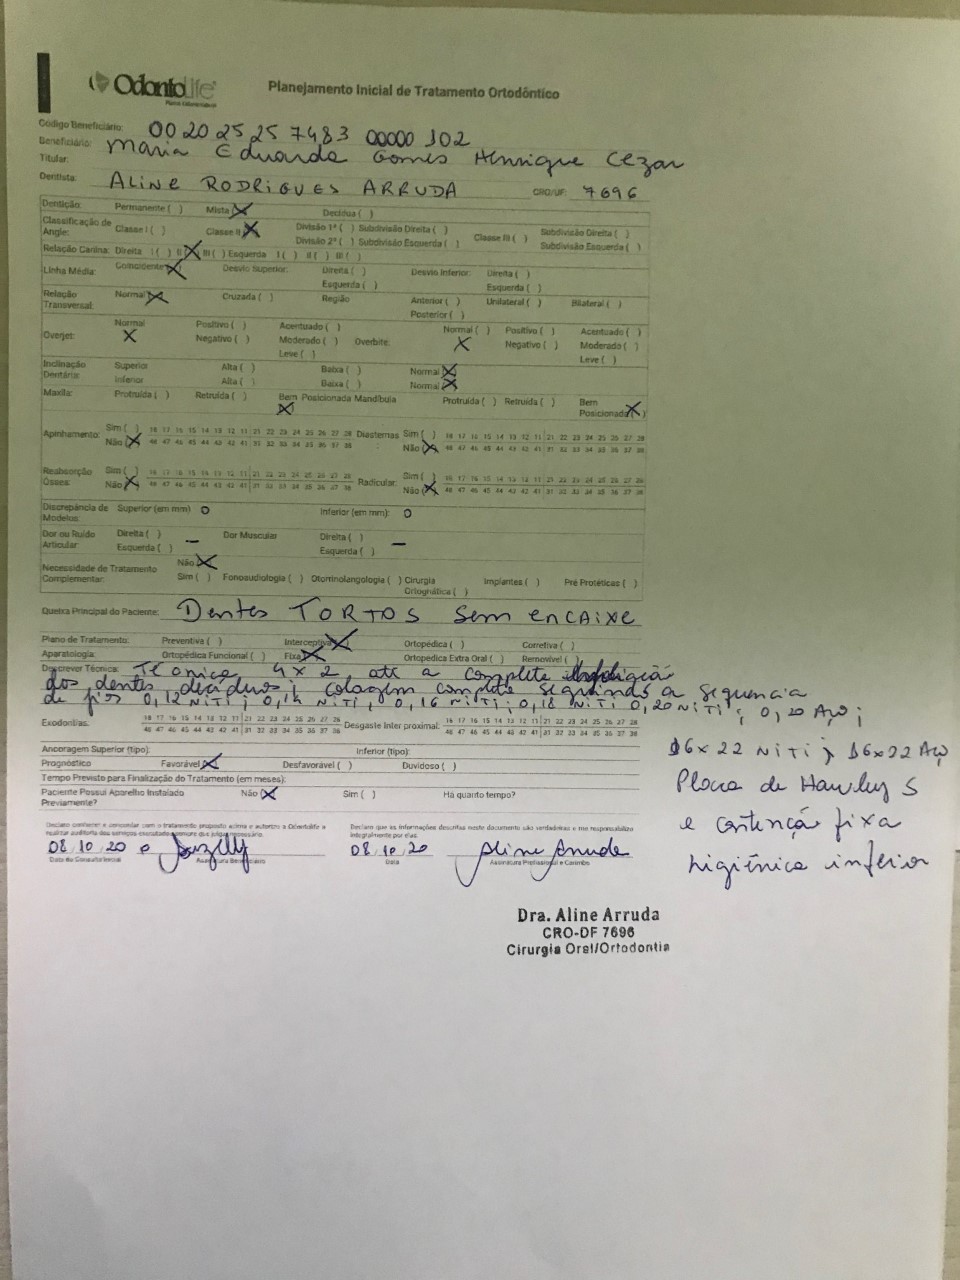 OdontoLife
Planos Odontológicos
Planejamento Inicial de Tratamento Ortodôntico
Código Beneficiário: 00 20 25 25 7483 00000 102
Beneficiário: Maria Eduarda Gomes Henrique Cezar
Titular:
Dentista: ALINE RODRIGUES ARRUDA CRO/UF: 7696
Dentição: Permanente ( ) Mista (X) Decídua ( )
Classificação de Angle: Classe I ( ) Classe II (X) Divisão 1ª ( ) Subdivisão Direita ( ) Classe III ( ) Subdivisão Direita ( )
Divisão 2ª ( ) Subdivisão Esquerda ( ) Subdivisão Esquerda ( )
Relação Canina: Direita I ( ) II (X) III ( ) Esquerda I ( ) II ( ) III ( )
Linha Média: Coincidente (X) Desvio Superior: Direita ( ) Desvio Inferior: Direita ( )
Esquerda ( ) Esquerda ( )
Relação Transversal: Normal (X) Cruzada ( ) Região Anterior ( ) Unilateral ( ) Bilateral ( )
Posterior ( )
Normal Positivo ( ) Acentuado ( ) Normal ( ) Positivo ( ) Acentuado ( )
Overjet: X Negativo ( ) Moderado ( ) Overbite: X Negativo ( ) Moderado ( )
Leve ( ) Leve ( )
Inclinação Dentária: Superior Alta ( ) Baixa ( ) Normal (X)
Inferior Alta ( ) Baixa ( ) Normal (X)
Maxila: Protruída ( ) Retruída ( ) Bem Posicionada (X) Mandíbula Protruída ( ) Retruída ( ) Bem Posicionada (X)
Apinhamento: Sim ( ) 18 17 16 15 14 13 12 11 21 22 23 24 25 26 27 28 Diastemas Sim ( ) 18 17 16 15 14 13 12 11 21 22 23 24 25 26 27 28
Não (X) 48 47 46 45 44 43 42 41 31 32 33 34 35 36 37 38 Não (X) 48 47 46 45 44 43 42 41 31 32 33 34 35 36 37 38
Reabsorção Óssea: Sim ( ) 18 17 16 15 14 13 12 11 21 22 23 24 25 26 27 28 Radicular: Sim ( ) 18 17 16 15 14 13 12 11 21 22 23 24 25 26 27 28
Não (X) 48 47 46 45 44 43 42 41 31 32 33 34 35 36 37 38 Não (X) 48 47 46 45 44 43 42 41 31 32 33 34 35 36 37 38
Discrepância de Modelos: Superior (em mm) 0 Inferior (em mm): 0
Dor ou Ruído Articular Direita ( ) Dor Muscular Direita ( )
Esquerda ( ) — Esquerda ( ) —
Necessidade de Tratamento Complementar: Não (X)
Sim ( ) Fonoaudiologia ( ) Otorrinolangologia ( ) Cirurgia Ortognática ( ) Implantes ( ) Pré Protéticas ( )
Queixa Principal do Paciente: Dentes TORTOS Sem encaixe
Plano de Tratamento: Preventiva ( ) Interceptiva (X) Ortopédica ( ) Corretiva ( )
Aparatologia: Ortopédica Funcional ( ) Fixa (X) Ortopédica Extra Oral ( ) Removível ( )
Descrever Técnica: Técnica 4x2 até a completa
dos dentes decíduos; colagem completa seguindo a sequencia
de fios 0,12 NiTi; 0,14 NiTi, 0,16 NiTi; 0,18 NiTi 0,20 NiTi; 0,20 Aço;
Exodontias: 18 17 16 15 14 13 12 11 21 22 23 24 25 26 27 28 Desgaste Inter proximal: 18 17 16 15 14 13 12 11 21 22 23 24 25 26 27 28
48 47 46 45 44 43 42 41 31 32 33 34 35 36 37 38 48 47 46 45 44 43 42 41 31 32 33 34 35 36 37 38
16x22 NiTi; 16x22 Aço
Placa de Hawley S
e contenção fixa
higiênica inferior
Ancoragem Superior (tipo): Inferior (tipo):
Prognóstico Favorável (X) Desfavorável ( ) Duvidoso ( )
Tempo Previsto para Finalização do Tratamento (em meses):
Paciente Possui Aparelho Instalado Previamente? Não (X) Sim ( ) Há quanto tempo?
Declaro conhecer e concordar com o tratamento proposto acima e autorizo a Odontolife a
realizar auditoria dos serviços executados sempre que julgar necessário.
Declaro que as informações descritas neste documento são verdadeiras e me responsabilizo
integralmente por elas.
08.10.20 08.10.20 Aline Arruda
Data da Consulta Inicial Assinatura Beneficiário Data Assinatura Profissional e Carimbo
Dra. Aline Arruda
CRO-DF 7696
Cirurgia Oral/Ortodontia